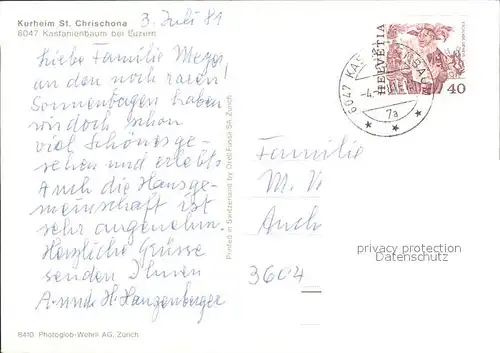 Kurheim St. Chrischona
6047 Kastanienbaum bei Luzern
3. Juli 81
Liebe Familie
an den noch raren
Sonnentagen haben
wir doch schon
viel Schönes ge-
sehen und erlebt.
Auch die Hausge-
meinschaft ist
sehr angenehm.
Herzliche Grüsse
senden Ihnen
A. und H. Hanzenberger
8410 Photoglob-Wehrli AG, Zürich
Printed in Switzerland by Orell Füssli SA Zürich
6047 KAS
7a
HELVETIA
40
Familie
M.
3604
privacy protection
Datenschutz